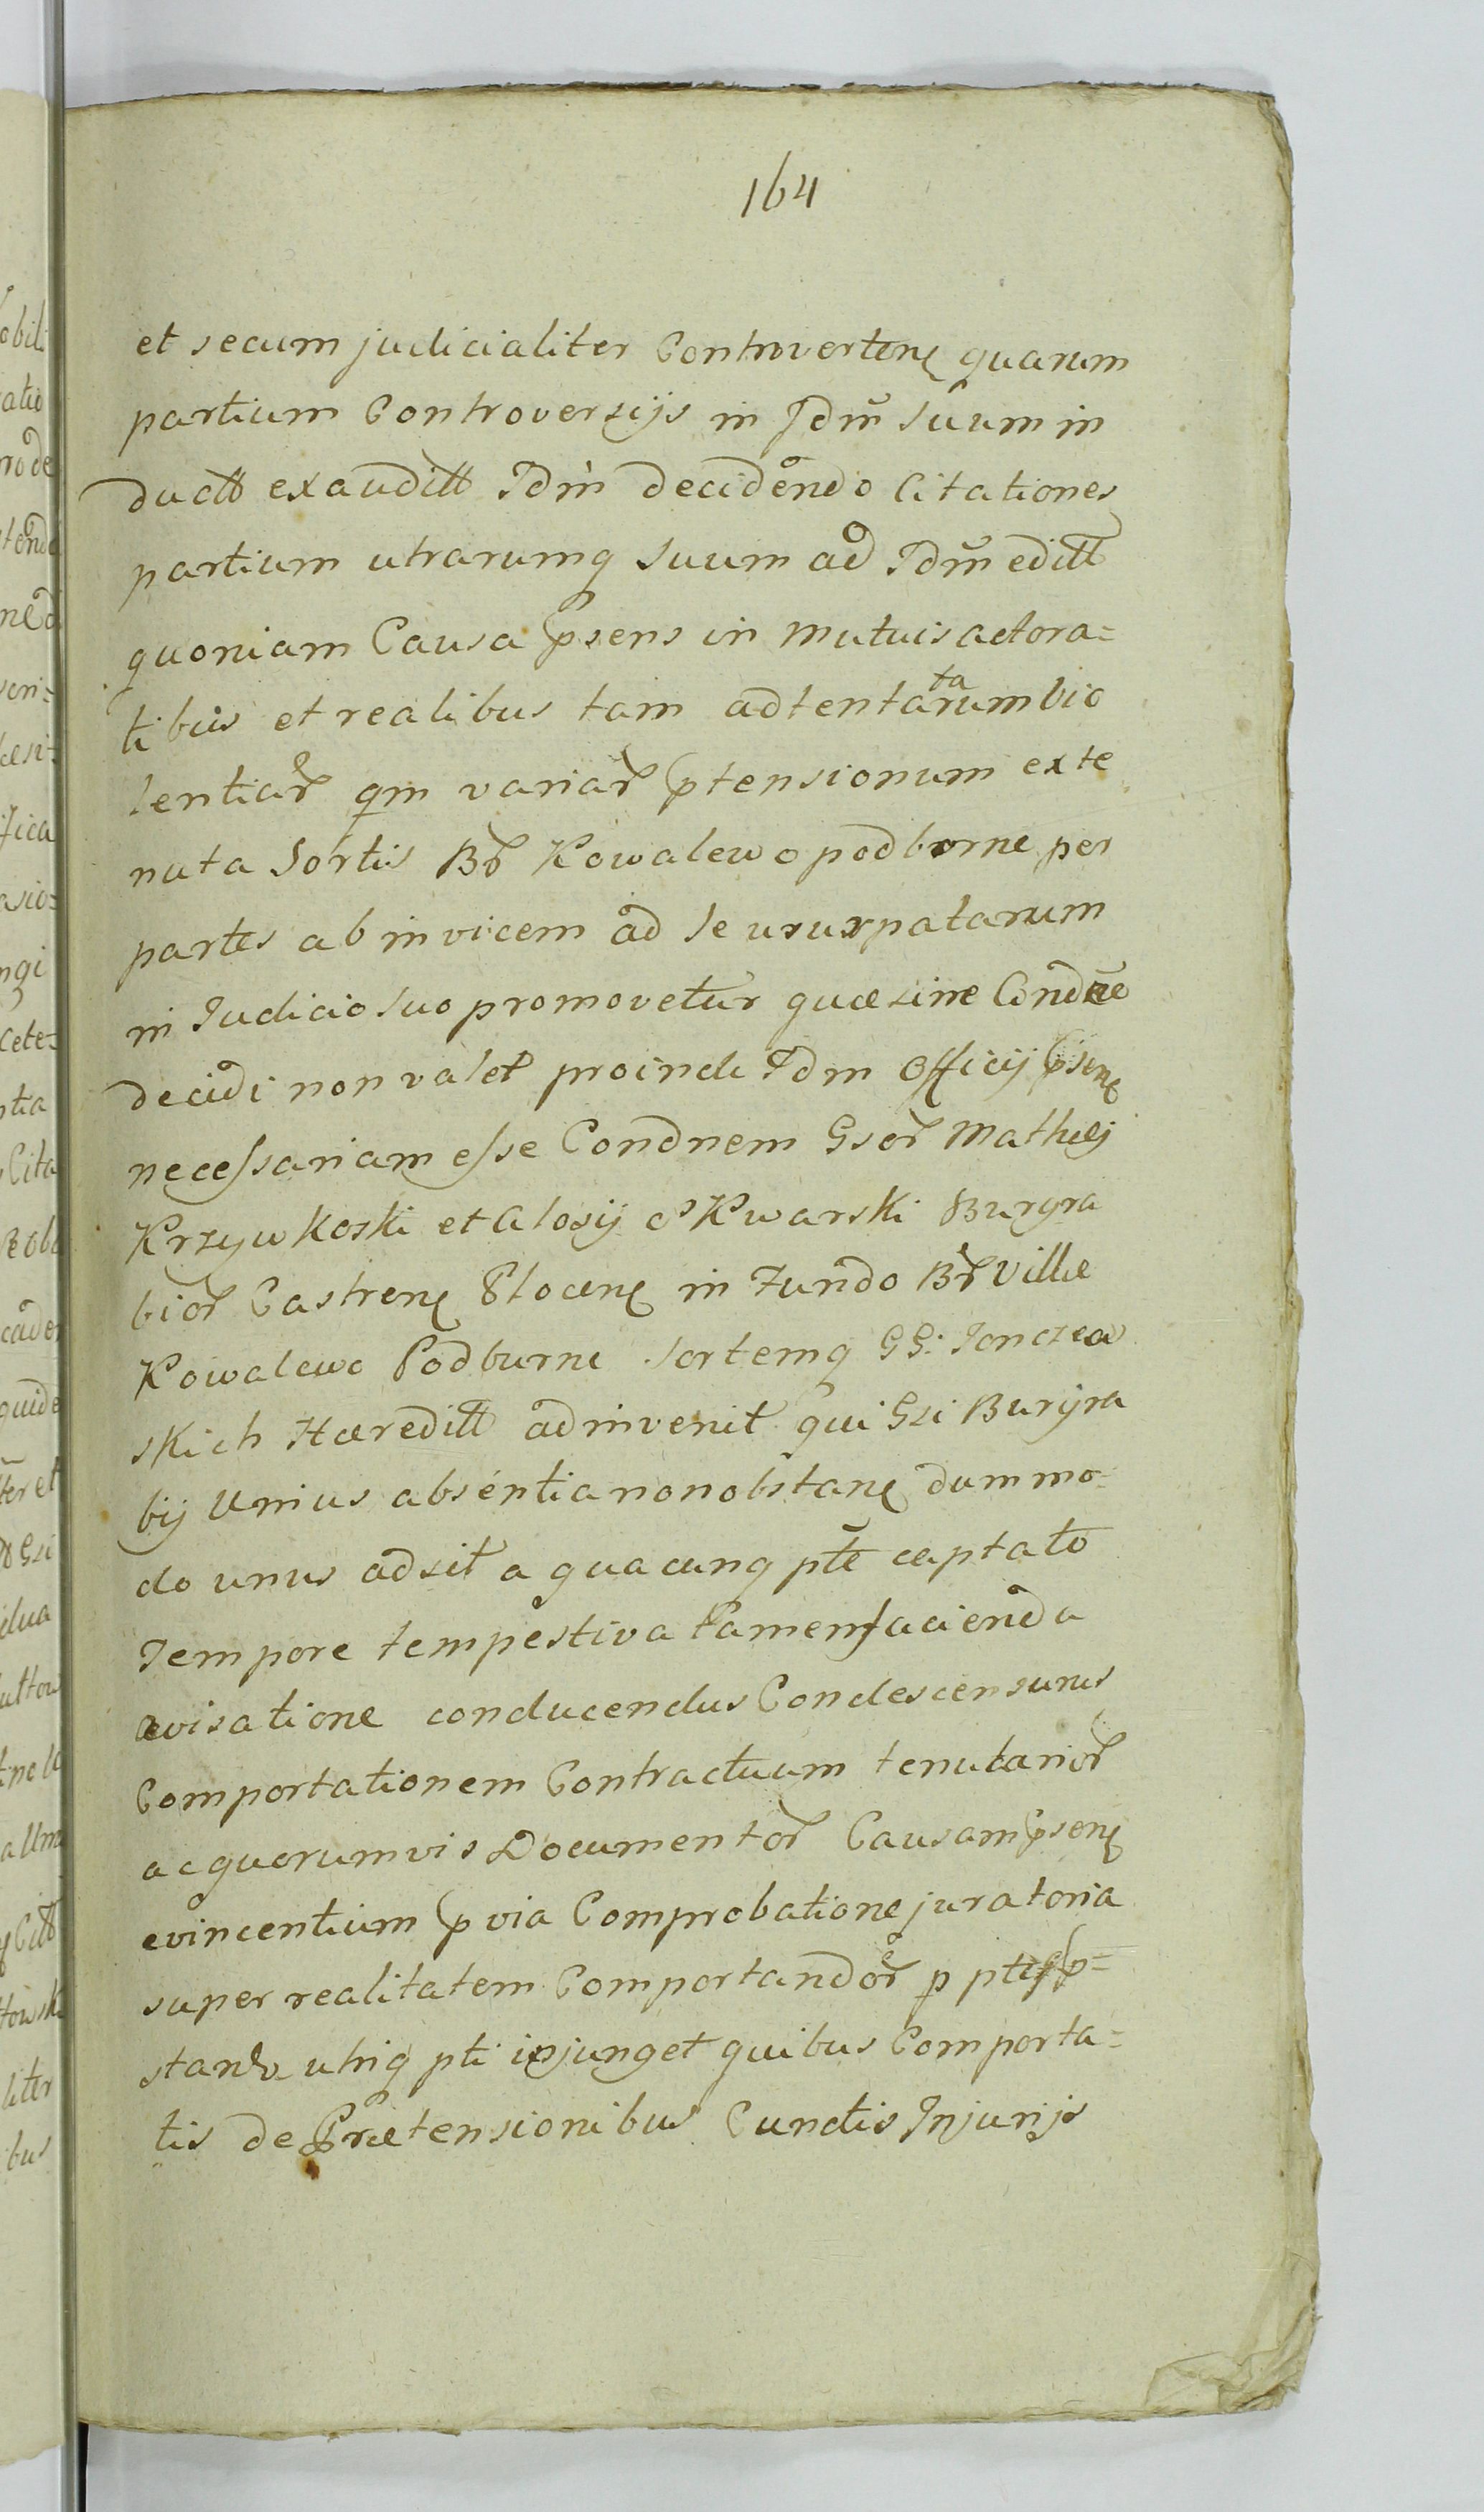 164
et secum judicialiter Controverten quarum
partium Controversijs in Jdm suum in
ductt exauditt Jdm decidendo Citationes
partium utrarumq suum ad Jdm editt
quoniam Causa psens in mutuis actora=
tibus et realibus tam adtentatarum vio
lentiar qm variar ptensionum ex te
nuta Sortis Br Kowalewo podborne per
partes ab invicem ad se usurpatarum
in Judicio suo promovetur quæ sine Condne
decidi non valet proinde Jdm Officij psen
necessariam esse Condnem Gsor Mathei
Krzywkoski et Alosij Kwarski Burgra
bior Castren Plocen in Fundo Br Villæ
Kowalewo Podburne sortemq GG: Jonczew
skich Hæreditt adinvenit qui Gsi Burgra
bij Unius absentia non obstan dummo=
do unus adsit a quacunq pte captato
Tempore tempestiva tamen facienda
avisatione conducendus Condescensurus
Comportationem Contractuum tenutarior
ac quorumvis Documentor Causam psen
evincentium pvia Comprobatione juratoria
super realitatem Comportandor p ptes p=
standa utriq pti injunget quibus Comporta=
tis de Prætensionibus Cunctis Injurijs